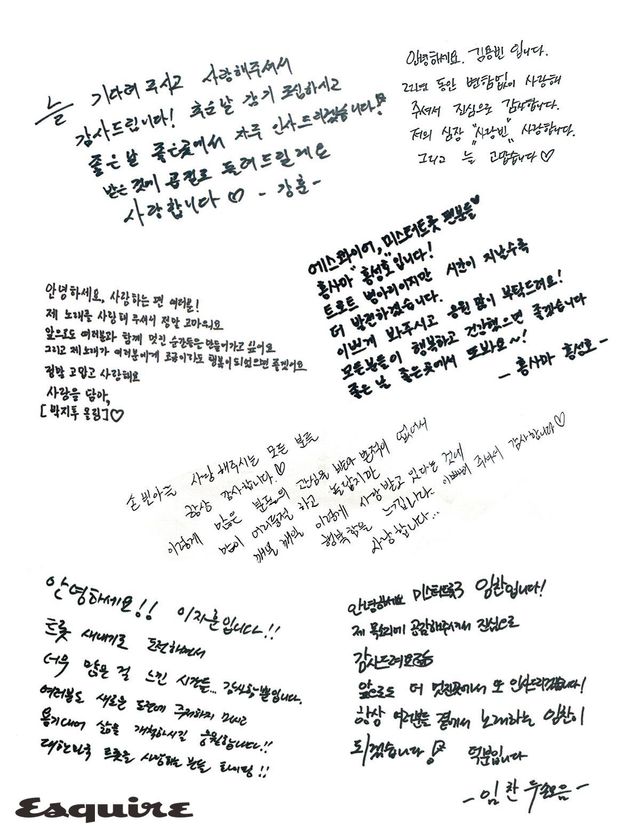 늘 기다려 주시고 사랑해주셔서
감사드립니다! 추운날 감기 조심하시고
좋은날 좋은곳에서 자주 인사드리겠습니다!
받은 것에 곱절로 돌려드릴게요
사랑합니다♡ - 강훈 -
안녕하세요. 김용빈 입니다.
22년 동안 변함없이 사랑해
주셔서 진심으로 감사합니다.
저의 심장 "사랑빈" 사랑합니다.
그리고 늘 고맙습니다♡
에스콰이어, 미스터트롯 팬분들♥
홍사마 "홍성호"입니다!
트로트 병아리이지만 시간이 지날수록
더 발전하겠습니다.
이쁘게 봐주시고 응원 많이 부탁드려요!
모든분들이 행복하고 건강했으면 좋겠습니다
좋은 날 좋은곳에서 또봐요~!
- 홍사마 홍성호 -
안녕하세요, 사랑하는 팬 여러분!
제 노래를 사랑해 주셔서 정말 고마워요
앞으로도 여러분과 함께 멋진 순간들을 만들어가고 싶어요
그리고 제 노래가 여러분에게 조금이라도 행복이 되었으면 좋겠어요
정말 고맙고 사랑해요
사랑을 담아,
[박지후 올림]♡
손빈아를 사랑해주시는 모든 분들
항상 감사합니다.♡
이렇게 많은 분들의 관심을 받아 본적이 없어서
많이 어리둥절 하고 놀랍지만
매일 매일 이렇게 사랑 받고 있다는 것에
행복함을 느낍니다. 이뻐해 주셔서 감사합니다♡
사랑합니다...
안녕하세요!! 이지훈입니다!!
트롯 새내기로 도전하면서
너무 많은 걸 느낀 시간들... 감사할 뿐입니다.
여러분도 새로운 도전에 주저하지 마시고
용기내어 삶을 개척하시길 응원합니다!!
대한민국 트롯을 사랑하는 분들 화이팅!!
안녕하세요 미스터트롯3 임찬입니다!
제 목소리에 공감해주셔서 진심으로
감사드려요
앞으로도 더 멋진곳에서 또 인사드리겠습니다!
항상 여러분들 곁에서 노래하는 임찬이
되겠습니다! 덕분입니다
- 임찬 두손모음 -
Esquire